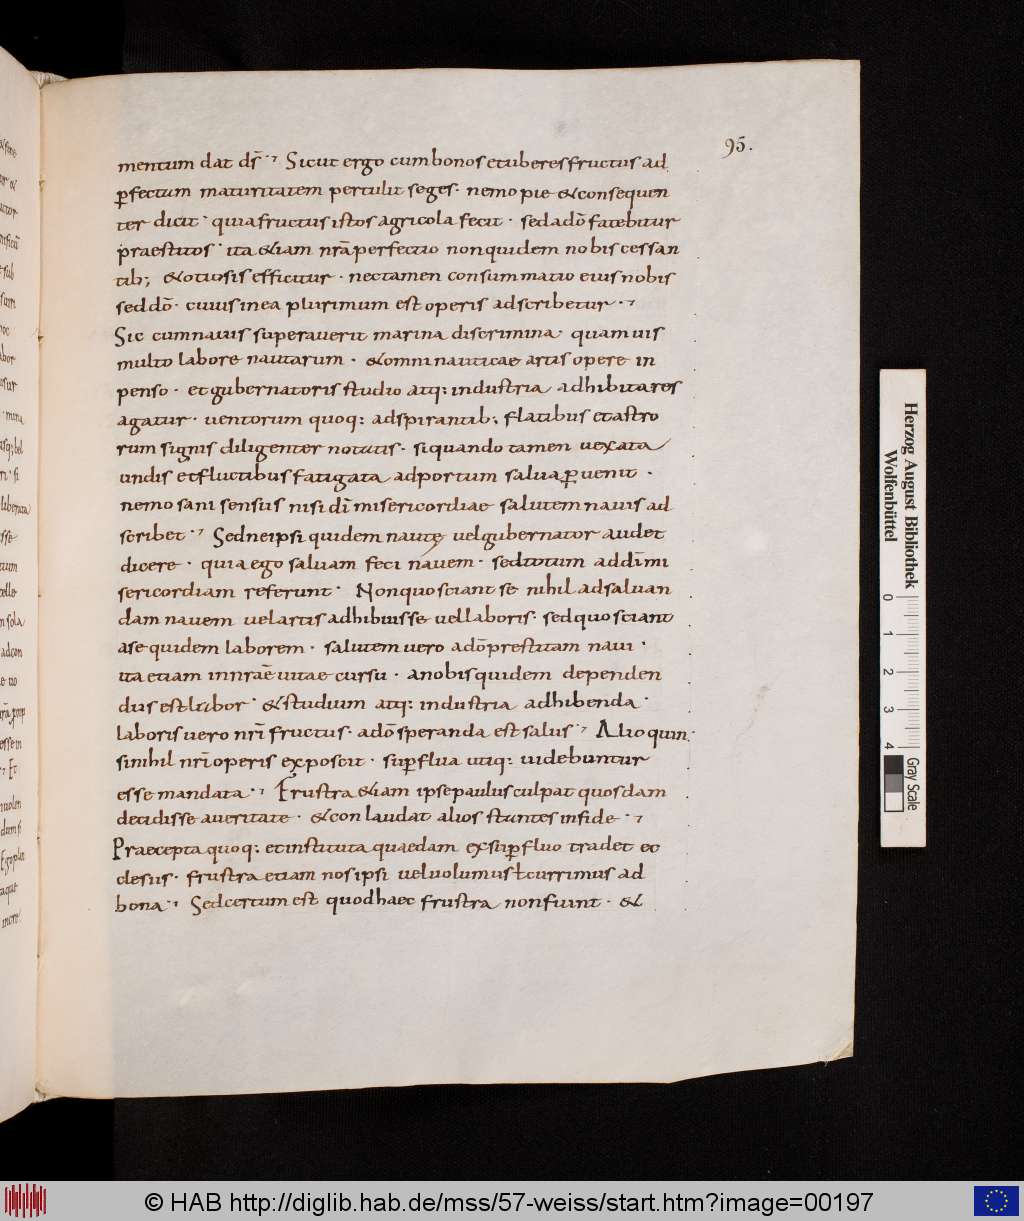 95.
mentum dat ds̄ ·⁊ Sicut ergo cum bonos et uberes fructus ad
p̲fectum maturitatem pertulit seges · nemo pie & consequen
ter dicit · quia fructus istos agricola fecit · sed a dō fatebitur
praestitos · ita &iam nr̄a perfectio non quidem nobis cessan
tib; & otiosis efficitur · nec tamen consummatio eius nobis
sed dō · cuius in ea plurimum est operis adscribetur ·⁊
Sic cum nauis superauerit marina discrimina · quamuis
multo labore nautarum · & omni nauticae artis opere in
penso · et gubernatoris studio atq: industria adhibita res
agatur · uentorum quoq: adspirantib; flatibus et astro
rum signis diligenter notatis · si quando tamen uexata
undis et fluctibus fatigata ad portum salua p̲uenit ·
nemo sani sensus nisi dī misericordiae salutem nauis ad
scribet ·⁊ Sed ne ipsi quidem nautę uel gubernator audet
dicere · quia ego saluam feci nauem · sed totum ad dī mi
sericordiam referunt · Non quo sciant se nihil ad saluan
dam nauem uel artis adhibuisse uel laboris · sed quo sciant
a se quidem laborem · salutem uero a dō prestitam naui ·
ita etiam in nr̄ae uitae cursu · a nobis quidem dependen
dus est labor · & studium atq: industria adhibenda ·
laboris uero nr̄i fructus · a dō speranda est salus ·⁊ Alioquin
si nihil nr̄i operis exposcit · sup̲flua utiq: uidebuntur
esse mandata ·⁊ Frustra &iam ipse paulus culpat quosdam
decidisse a ueritate · & conlaudat alios stantes in fide ·⁊
Praecepta quoq: et instituta quaedam ex sup̲fluo tradet ec
clesiis · frustra etiam nos ipsi uel uolumus ł currimus ad
bona ·⁊ Sed certum est quod haec frustra non fiunt · &
Herzog August Bibliothek
Wolfenbüttel
0 1 2 3 4
Gray Scale
© HAB http://diglib.hab.de/mss/57-weiss/start.htm?image=00197